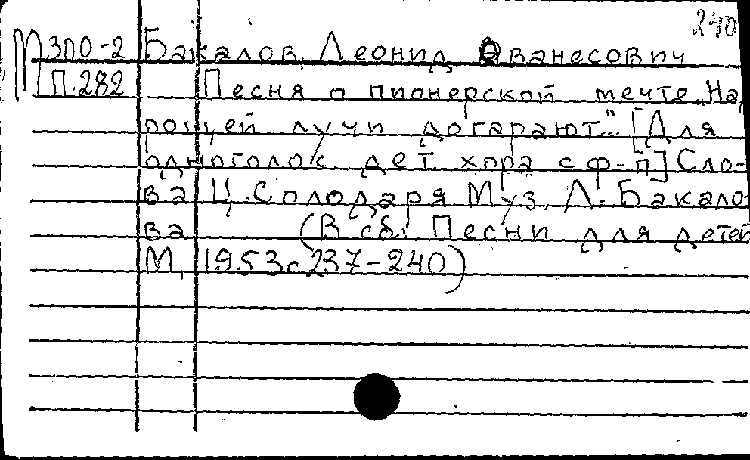 240
М ЗПО-2 Бакалов, Леонид Ованесович
П.282 Песня о пионерской мечте „На
рощей лучи догарают"... [Для
одноголос. дет. хора с ф-п] Сло-
ва Ц. Солодаря Муз. Л. Бакало
ва (В сб. Песни для детей
М, 1953 с 237-240)